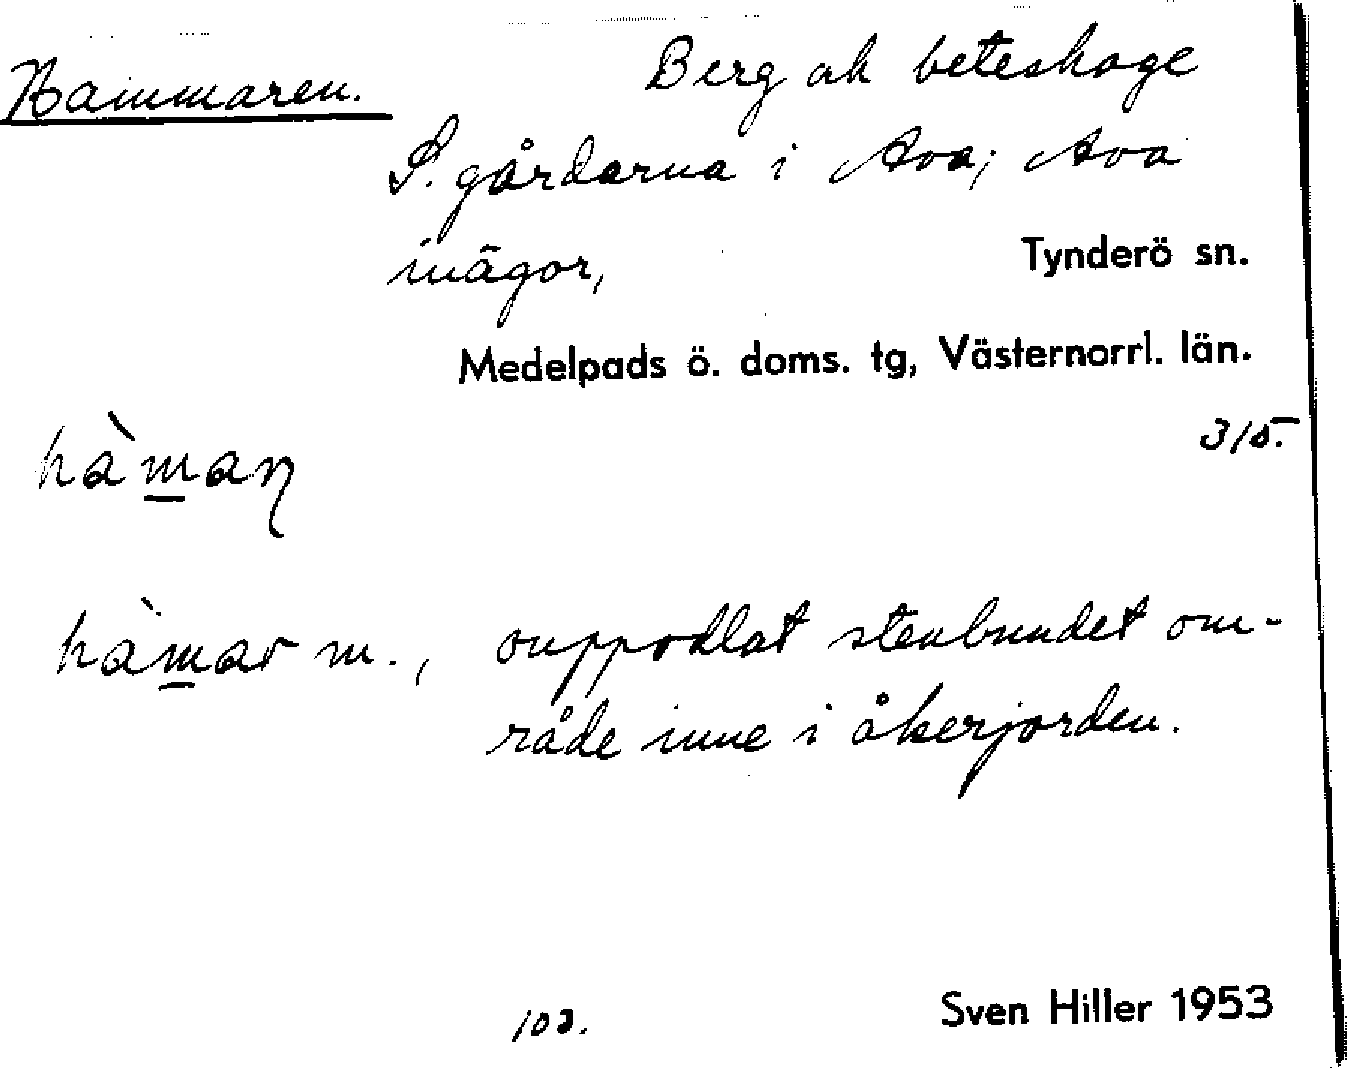 Hammaren.
Berg ok beteshage
S. gårdarna i Ava; Ava
inägor,
Tynderö sn.
Medelpads ö. doms. tg, Västernorrl. län.
315.
hàmaɳ
hàmar m., ouppodlat stenbundet om-
råde inne i åkerjorden.
103.
Sven Hiller 1953